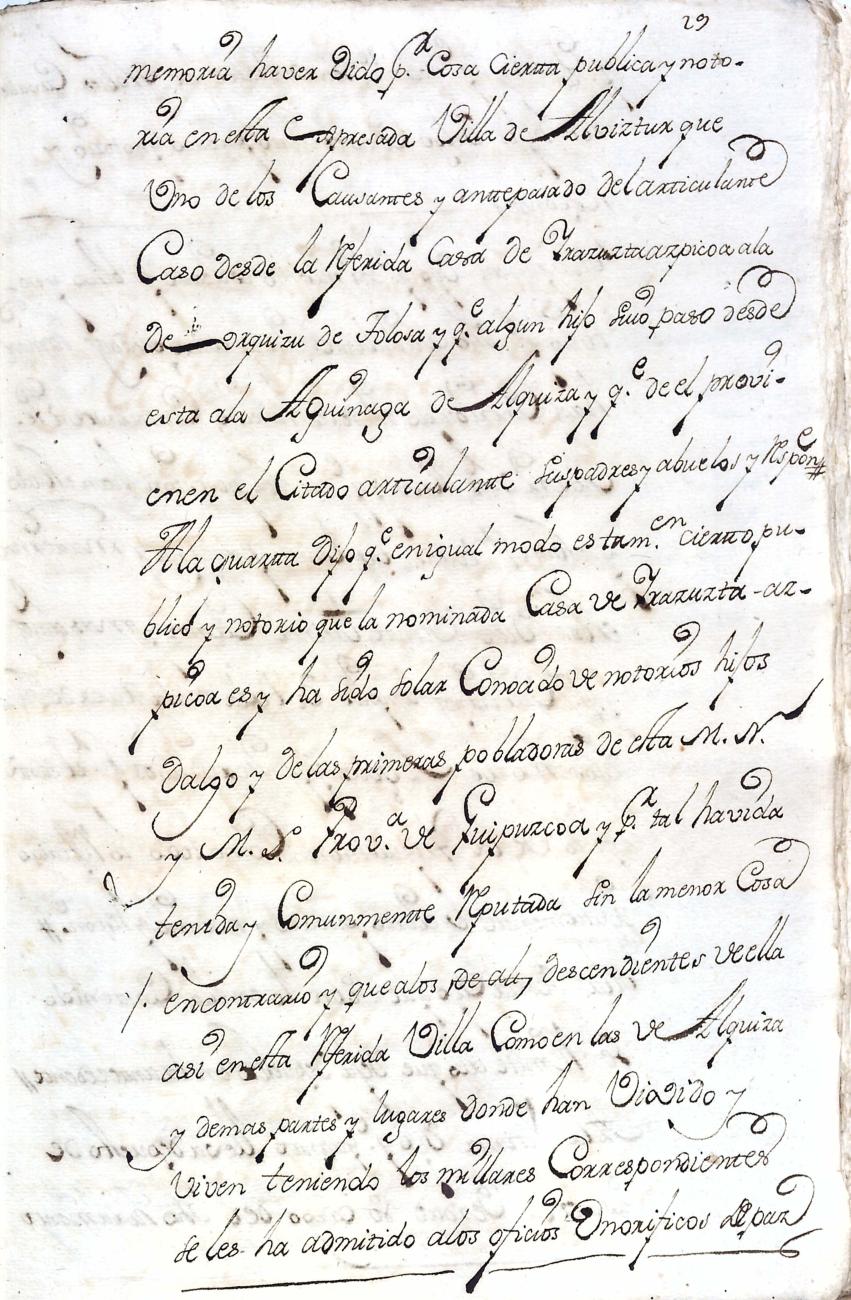 29
memoria haver oido p.r Cosa Cierta publica y noto-
ria en esta Expresada Villa de Alviztur que
Uno de los Causantes y anttepasado del articulante
Caso desde la Referida Casa de Yrazuztaazpicoa ala
de Lorquizu de Tolosa y q.e algun hijo suio paso desde
esta ala Alguinaga de Alquiza y q.e de el provi-
enen el Citado articulantte sus padres y abuelos y Respon.e
Ala quarta Dijo q.e en igual modo es tam.en cierto pu-
blico y notorio que la nominada Casa de Yrazuzta-az-
picoa es y ha sido solar Conocido de notorios hijos
dalgo y de las primeras pobladoras de esta M. N.
y M. L. Prov.a de Guipuzcoa y p.r tal havida
tenida y Comunmente Reputada sin la menor Cosa
/. encontrario y que alos de alt descendientes de ella
asi en esta Referida Villa Como en las de Alquiza
y demas partes y lugares donde han Vivido y
viven teniendo los millares Correspondientes
se les ha admitido alos oficios Onorificos de paz